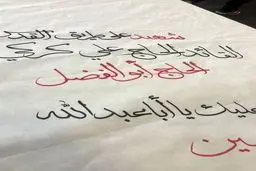 شهيد على طريق القد
القائد الحاج علي كركي
الحاج أبو الفضل
عليك يا أبا عبد الله